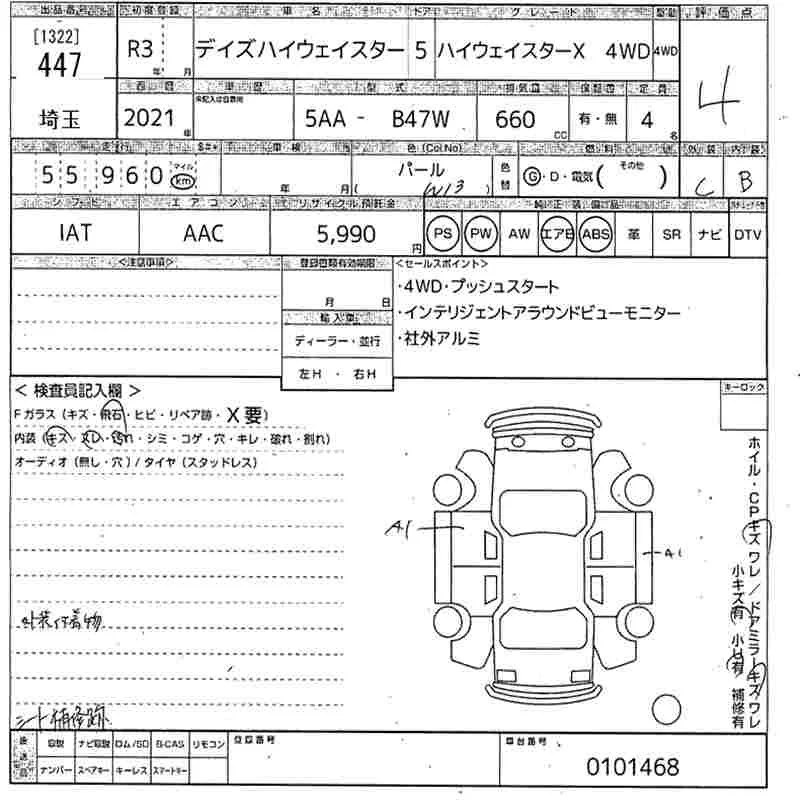 出品番号 初度登録 車名 ドア グレード 駆動 評価点
[1322]
447
R3 年 月 デイズハイウェイスター 5 ハイウェイスターX 4WD 4WD
4
西暦 車歴 型式 排気量 保証書 定員
未記入は自家用
埼玉 2021 年 5AA - B47W 660 CC 有・無 4 名
走行 S#* 車検 色 (Col.No) 燃料 外装 内装
55960 マイル km 年 月 パール ( W13 ) 色替 G・D・電気( その他 ) C B
シフト エアコン リサイクル預託金 純正装備品
IAT AAC 5,990 円 PS PW AW エアB ABS 革 SR ナビ DTV
<注意事項> 登録書類有効期限 <セールスポイント>
月 日
・4WD・プッシュスタート
輸入車
・インテリジェントアラウンドビューモニター
ディーラー・並行
・社外アルミ
左H ・ 右H
< 検査員記入欄 >
キーロック
Fガラス (キズ・飛石・ヒビ・リペア跡・X要)
内装 (キズ・スレ・汚れ・シミ・コゲ・穴・キレ・破れ・割れ)
オーディオ (無し・穴) / タイヤ (スタッドレス)
A1
A1
ホイル・CPキズ ワレ / ドアミラーキズワレ
小キズ有 小U有 補修有
外装付着物
シート補修跡
後送品 取説 ナビ取説 ロム/SD B-CAS リモコン 登録番号 車台番号
ナンバー スペアキー キーレス スマートキー
0101468